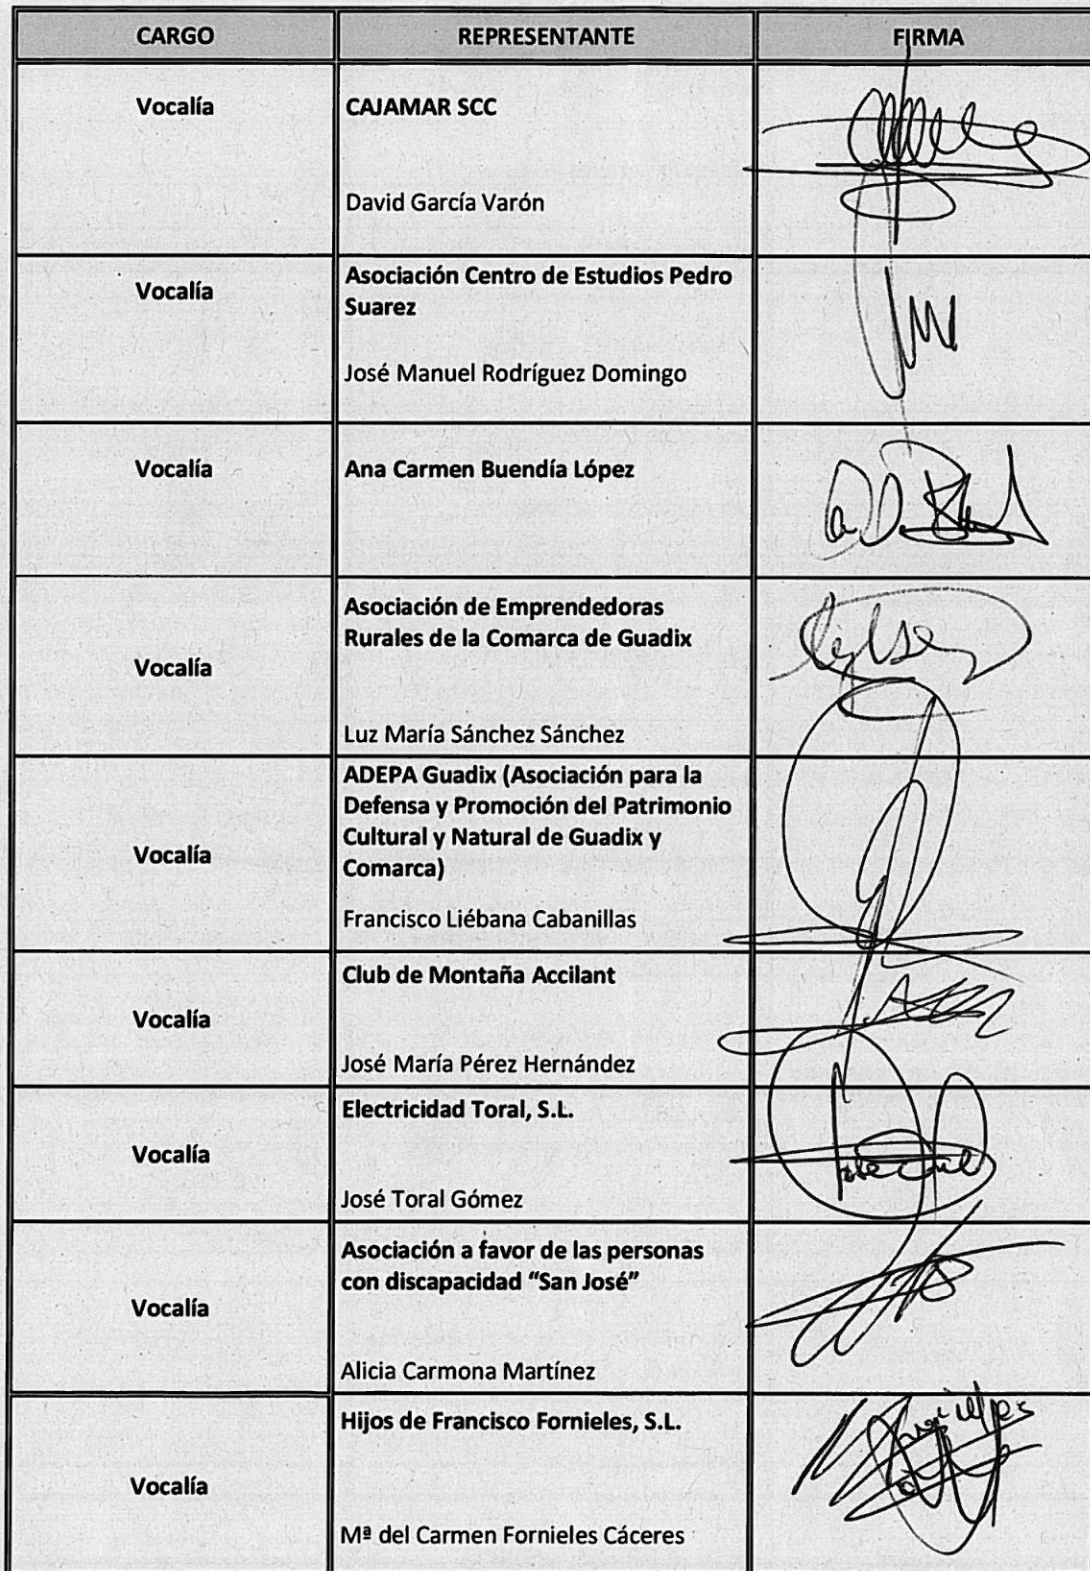 CARGO REPRESENTANTE FIRMA
Vocalía CAJAMAR SCC
David García Varón
Vocalía Asociación Centro de Estudios Pedro
Suarez
José Manuel Rodríguez Domingo
Vocalía Ana Carmen Buendía López
Asociación de Emprendedoras
Rurales de la Comarca de Guadix
Vocalía
Luz María Sánchez Sánchez
ADEPA Guadix (Asociación para la
Defensa y Promoción del Patrimonio
Cultural y Natural de Guadix y
Vocalía
Comarca)
Francisco Liébana Cabanillas
Club de Montaña Accilant
Vocalía
José María Pérez Hernández
Electricidad Toral, S.L.
Vocalía
José Toral Gómez
Asociación a favor de las personas
con discapacidad “San José”
Vocalía
Alicia Carmona Martínez
Hijos de Francisco Fornieles, S.L.
Vocalía
Mª del Carmen Fornieles Cáceres